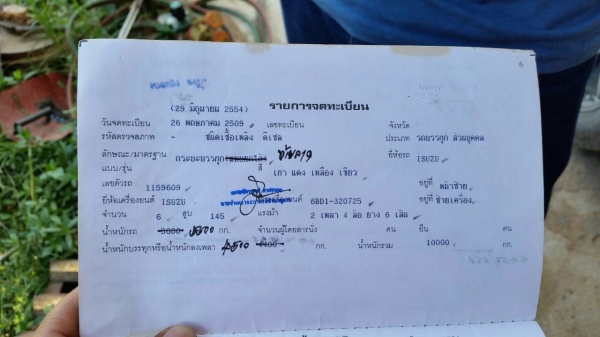 6
(29 มิถุนายน 2554) รายการจดทะเบียน
วันจดทะเบียน 26 พฤษภาคม 2509 เลขทะเบียน จังหวัด
รหัสตรวจสภาพ - ชนิดเชื้อเพลิง ดีเซล ประเภท รถบรรทุก ส่วนบุคคล
ลักษณะ/มาตรฐาน กระบะบรรทุก ยี่ห้อรถ ISUZU
แบบ/รุ่น สี เทา แดง เหลือง เขียว
เลขตัวรถ 1159609 อยู่ที่ หน้าซ้าย
ยี่ห้อเครื่องยนต์ ISUZU 6BD1-320725 อยู่ที่ ซ้ายเครื่อง
จำนวน 6 สูบ 145 แรงม้า 2 เพลา 4 ล้อ ยาง 6 เส้น
น้ำหนักรถ 5600 กก. จำนวนผู้โดยสารนั่ง คน ยืน คน
น้ำหนักบรรทุกหรือน้ำหนักลงเพลา 4400 กก. น้ำหนักรวม 10000 กก.